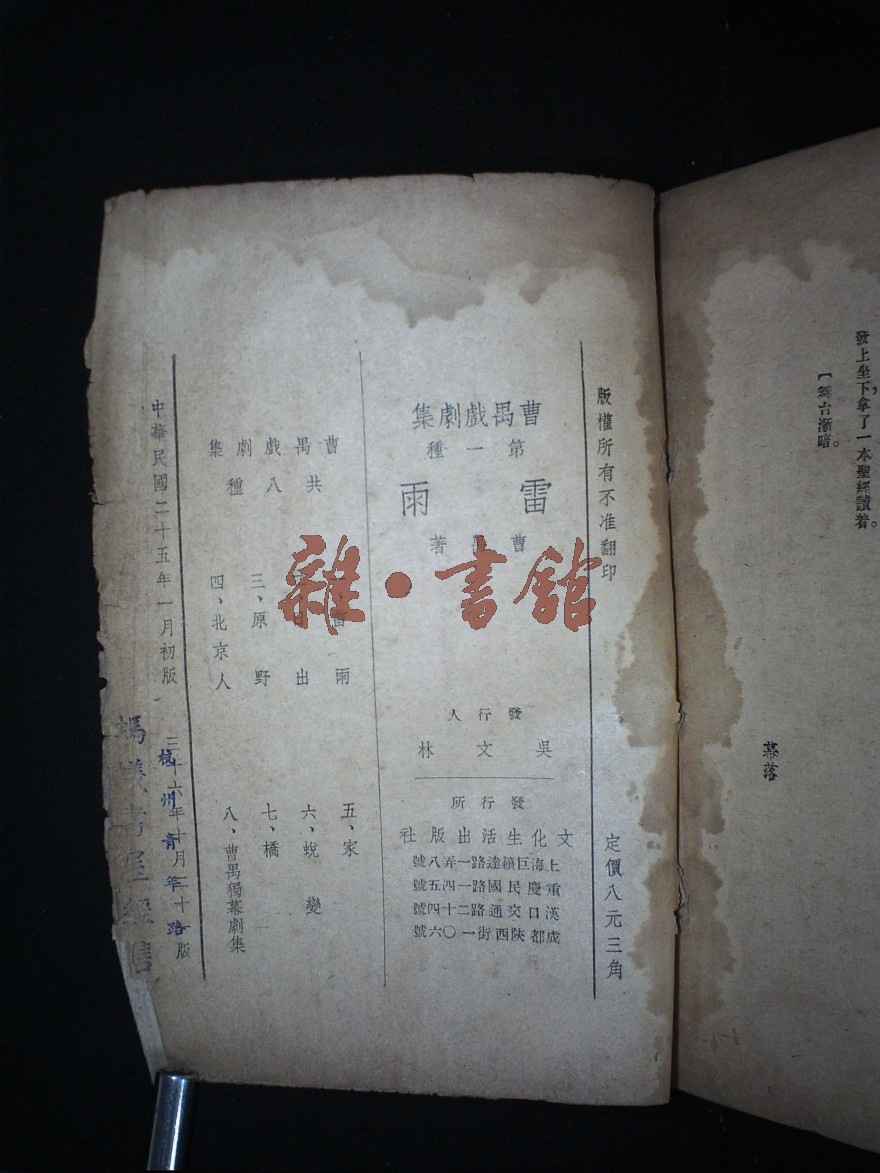 發上坐下，拿了一本聖經讀着。
【舞台漸暗。
幕落
版權所有不准翻印
定價八元三角
曹禺戲劇集
第一種
雷雨
曹禺著
發行人
吳文林
發行所
文化生活出版社
上海巨籟達路一弄八號
重慶民國路一四五號
漢口交通路二十四號
成都陝西街一〇六號
曹禺戲劇集
共八種
一、雷雨
二、日出
三、原野
四、北京人
五、家
六、蛻變
七、橋
八、曹禺獨幕劇集
中華民國二十五年一月初版
三十六年十月二十版
杭州青年路
雜·書館